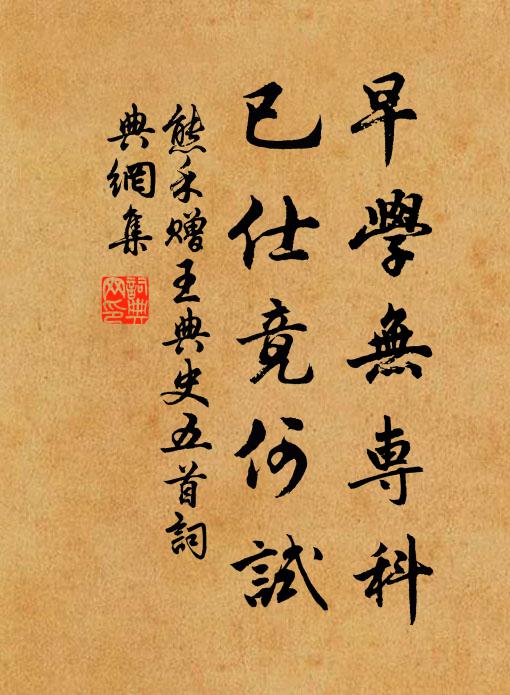 早學無專科
已仕竟何試
熊禾贈王典史五首詞
典網集
詞典
网印